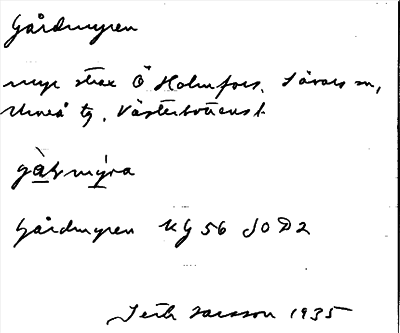 Gårdmyren
myr strax Ö Holmfors, Sävars sn,
Umeå tg, Västerbottens l.
gà̱rmy̱ra
Gårdmyren KG 56 JOD2
Larsson 1935